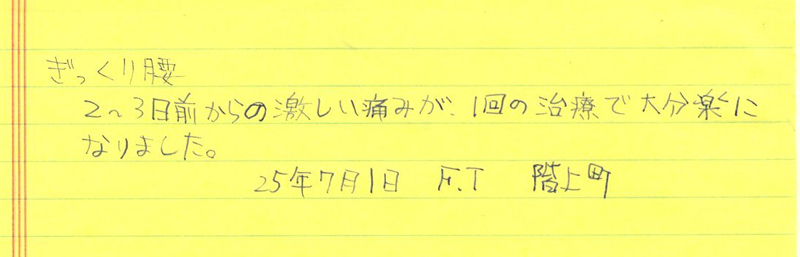 ぎっくり腰
2~3日前からの激しい痛みが、1回の治療で大分楽に
なりました。
25年7月1日 F.T 階上町